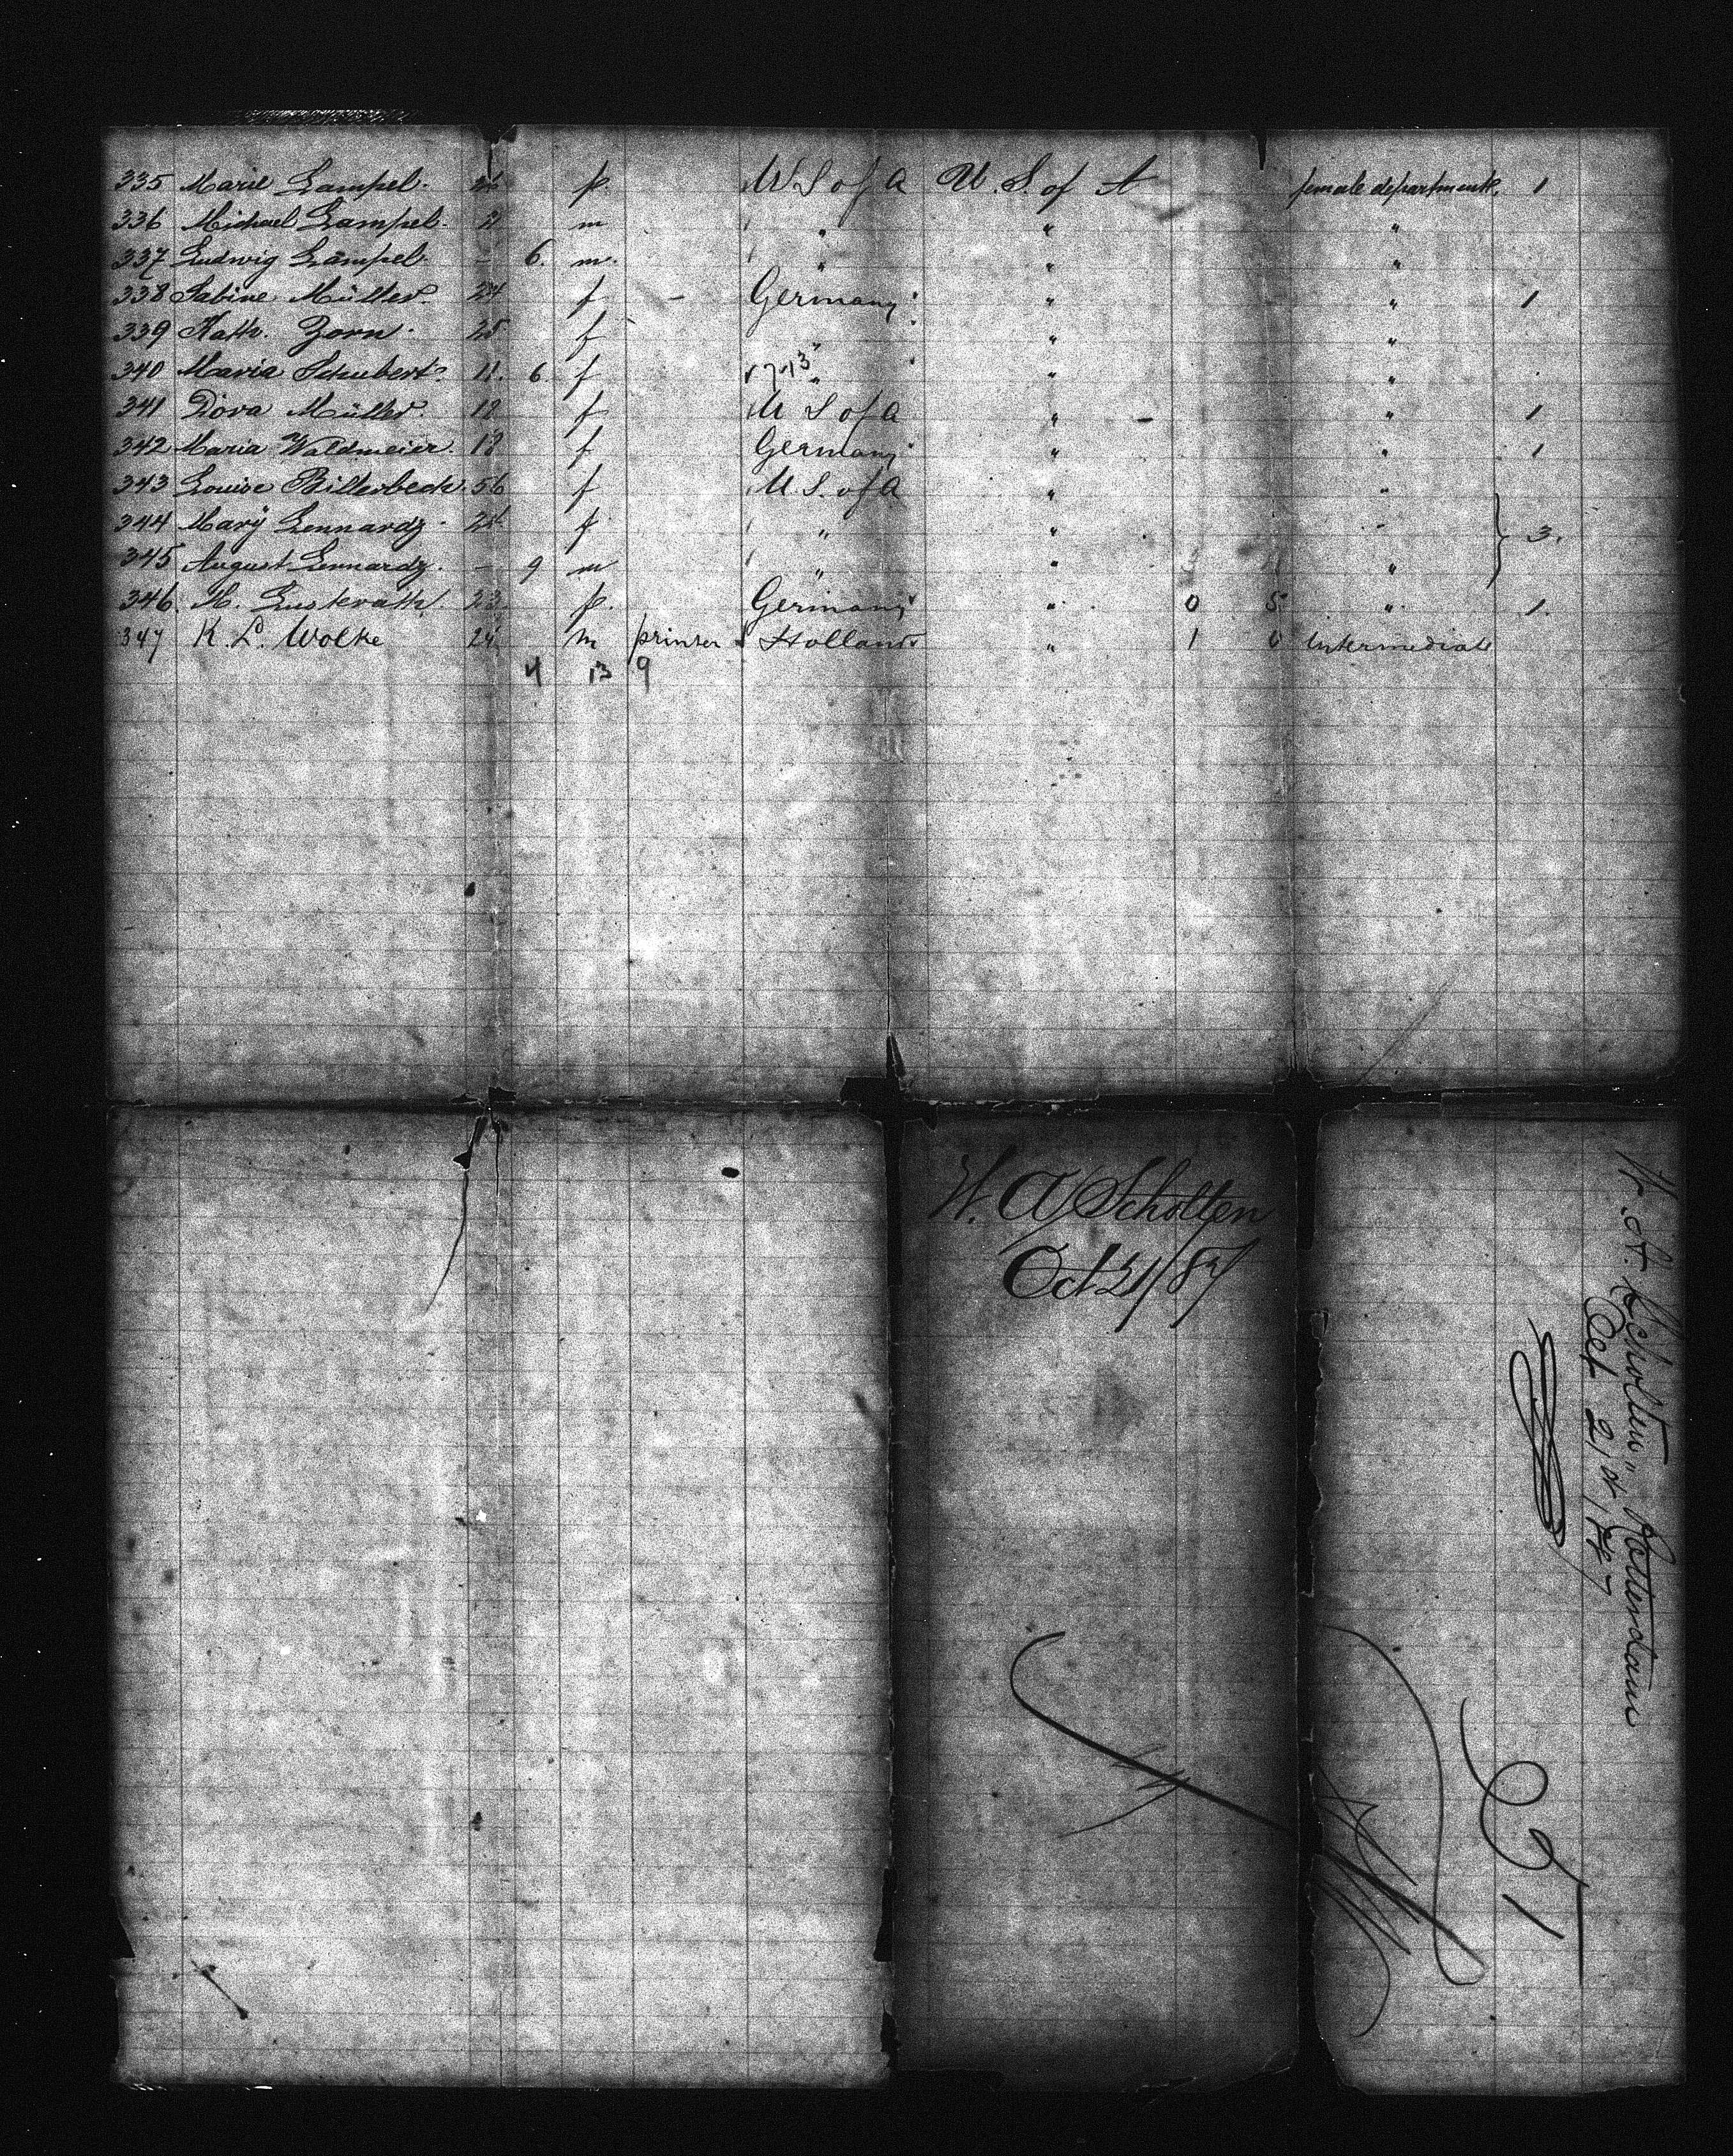 335 Marie Lampel. f. U S of A U. S. of A female department. 1
336 Michael Lampel. m " " "
337 Ludwig Lampel. - 6. m. " " "
338 Sabine Müller. 24 f - Germany " " 1
339 Kath. Zorn. 25 f " " "
340 Maria Schubert. 11. 6 f " " "
341 Dora Müller. 18 f U S of A " - " 1
342 Maria Waldmeier. 18 f Germany " " 1
343 Louise Billerbeck 56 f U. S. of A " "
344 Mary Lennardz. f " " " 3.
345 August Lennardz. - 9 m " " "
346. M. 23 f. Germany " 0 5 " 1.
347 K. L. Wolke 24 m printer Holland " 1 0 Intermediate
4 13 9
W. A Scholten
Oct 21/87
W. A. Scholten" Rotterdam
Oct 21st 1887